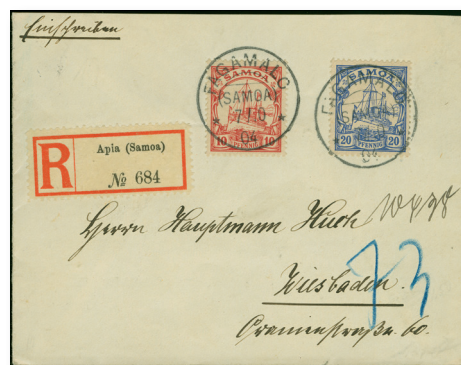 Einschreiben
FAGAMALO
(SAMOA)
7/10
04
SAMOA
10 10
PFENNIG
FAGAMALO
SAMOA
SAMOA
20 20
PFENNIG
R
Apia (Samoa)
№ 684
Herrn Hauptmann Huch
Wiesbaden.
Oranienstraße. 60.
73